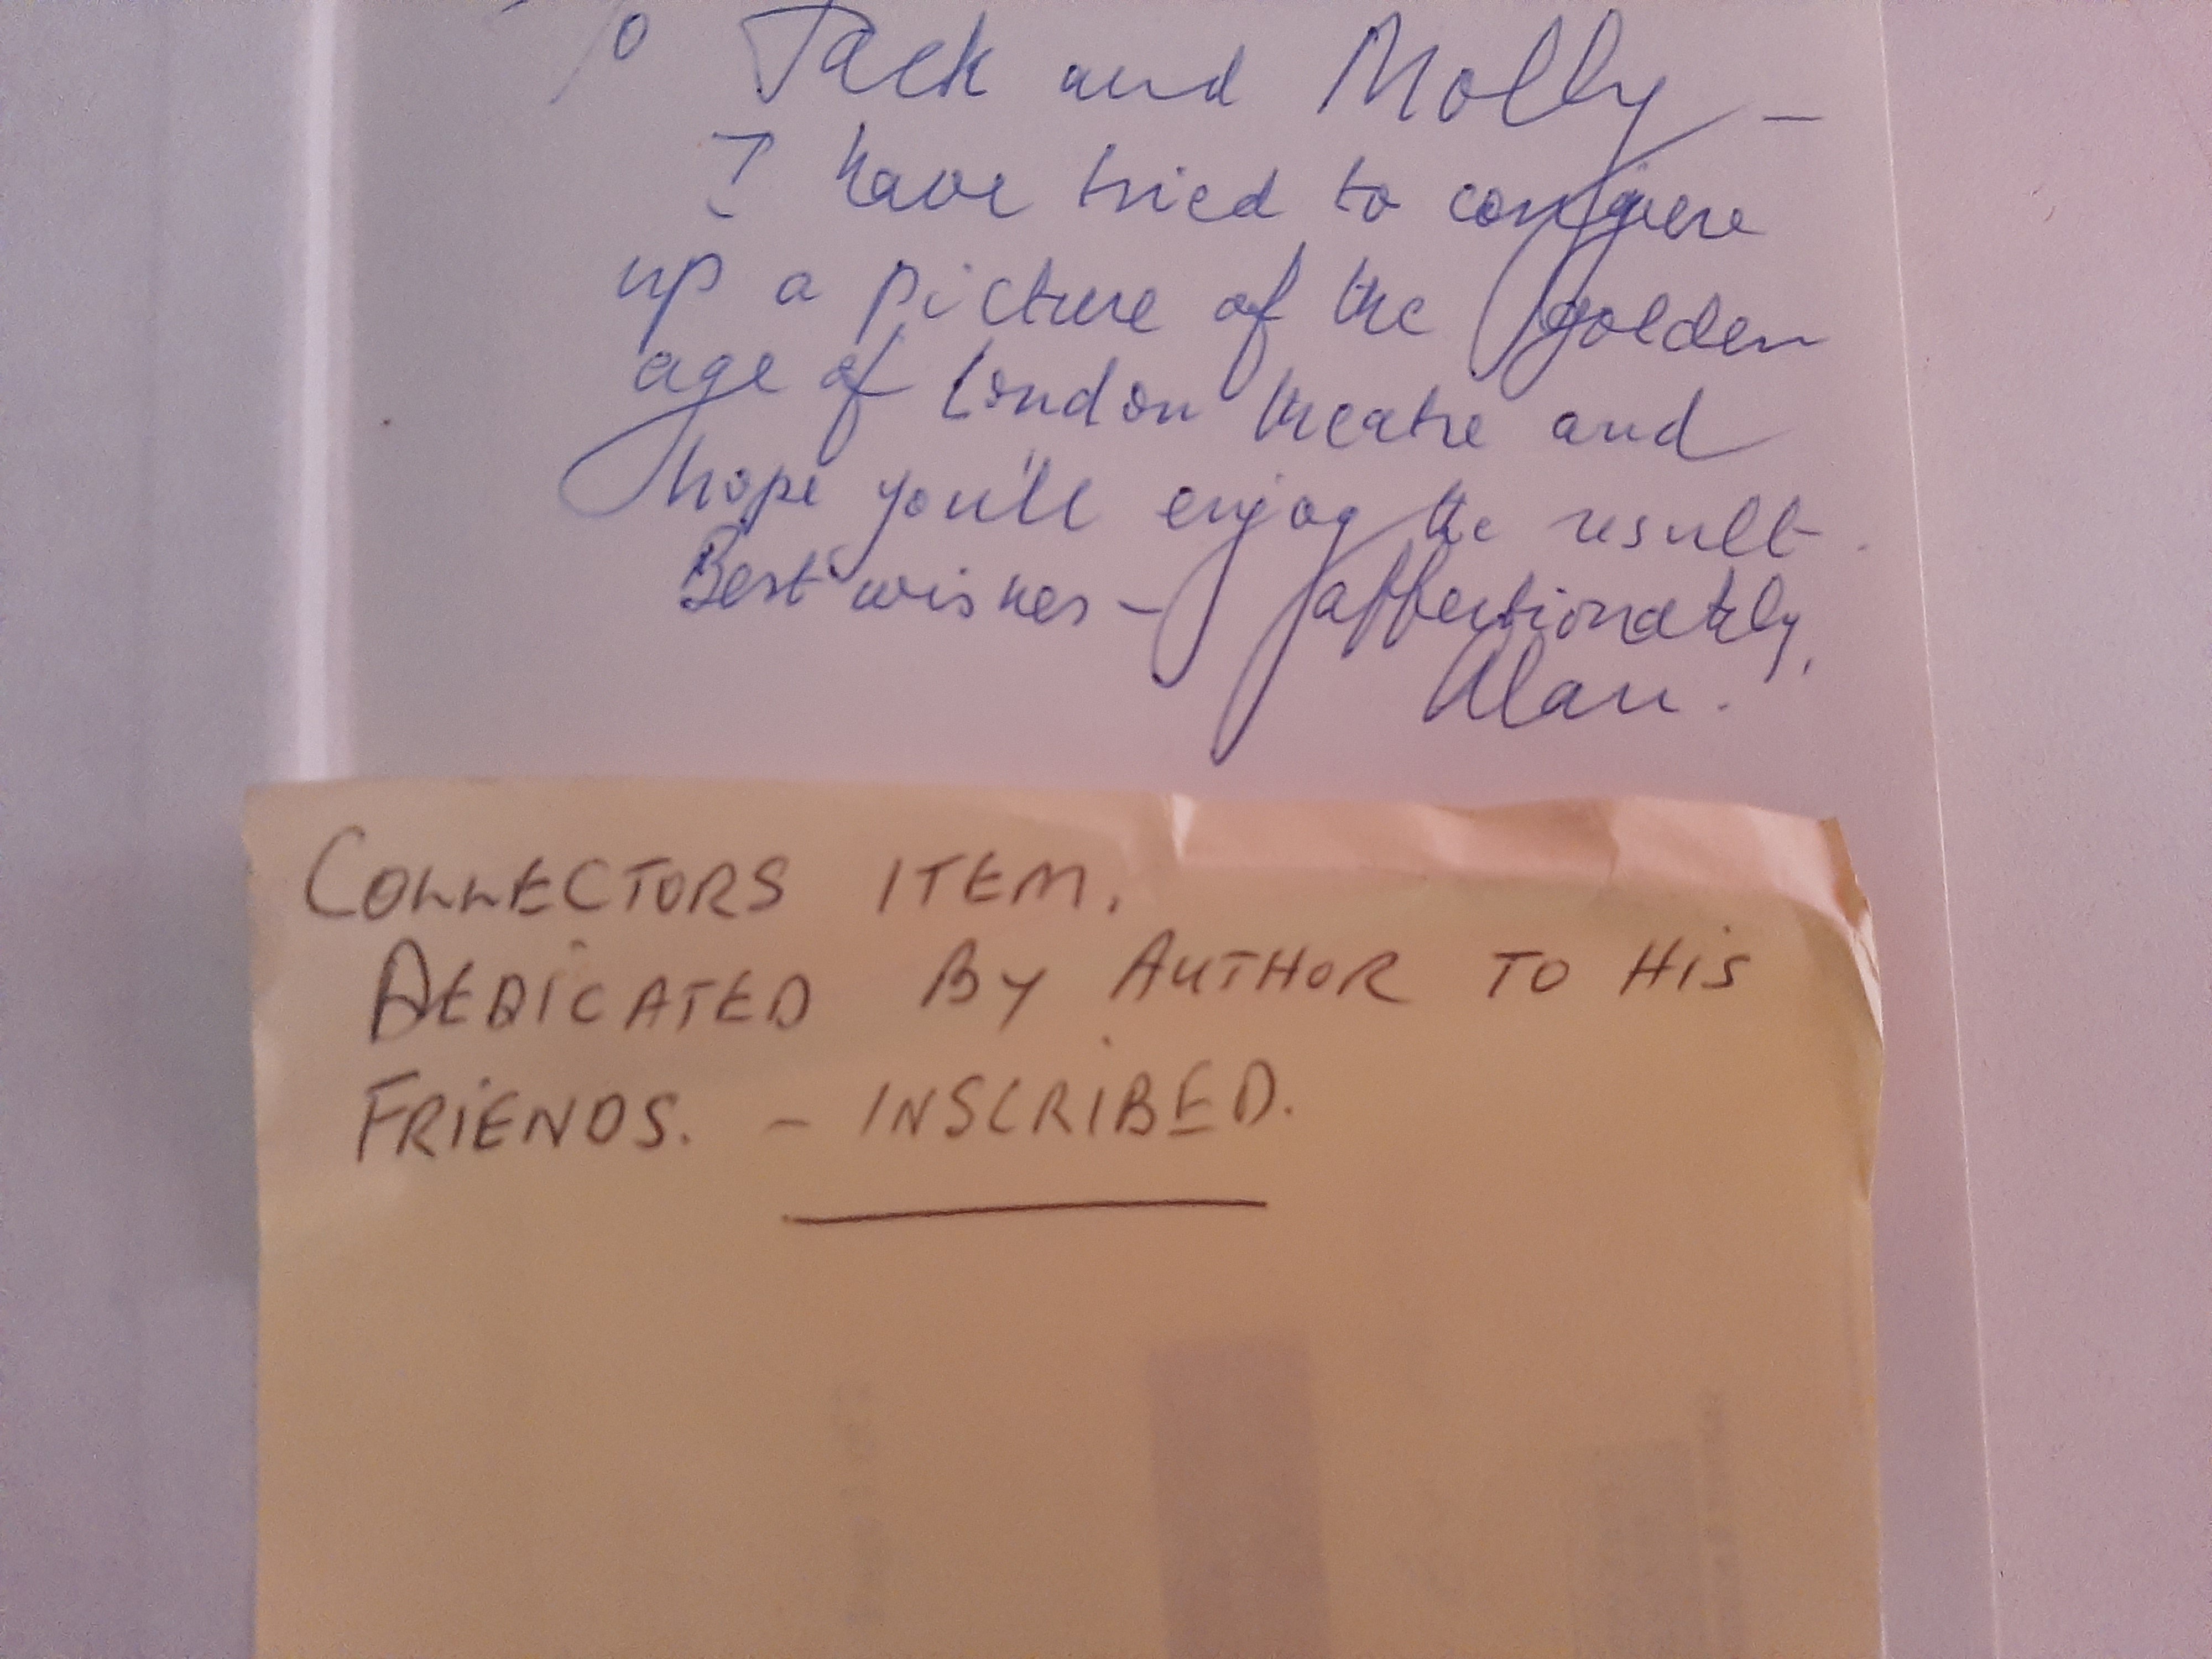 To Jack and Molly –
I have tried to conjure
up a picture of the golden
age of London theatre and
hope you'll enjoy the result.
Best wishes – affectionately,
Alan.
COLLECTORS ITEM.
DEDICATED BY AUTHOR TO HIS
FRIENDS. – INSCRIBED.